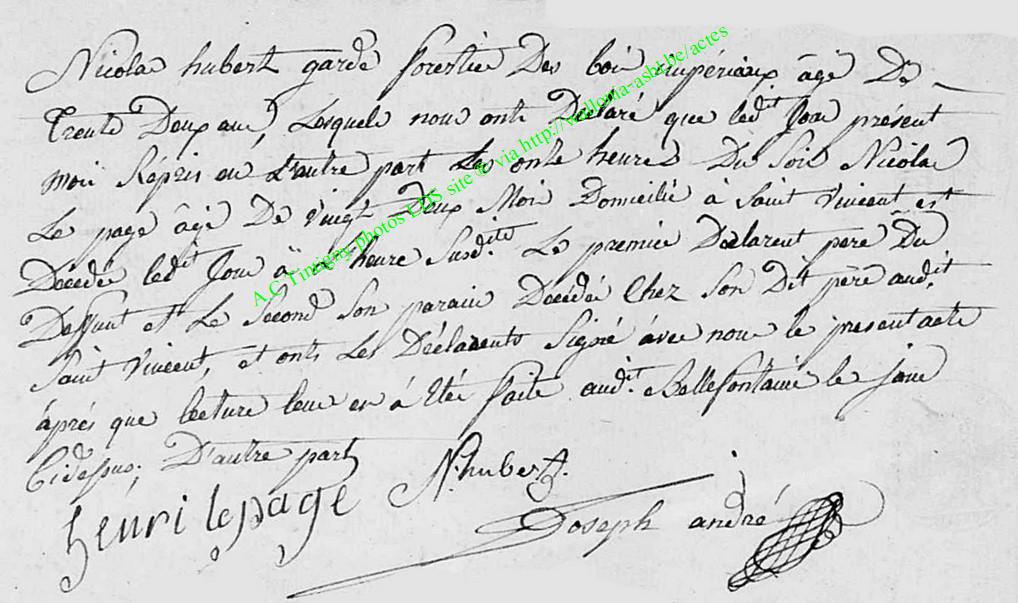 Nicolas hubert garde forestier Des bois impériaux âgé De
trente Deux ans, Lesquels nous onts Déclaré que ledit Jour présent
mois Répris en L'autre part Les onze heures Du Soir Nicolas
Le page âgé De vingt Deux Mois Domicilié à Saint Vincent est
Décédée ledit Jour à heure Susdite Le premier Déclarent père Du
Deffunt et Le Second Son parain Décédée Chez Son Dit père audit
Saint Vincent, et onts Les Déclarents Signé avec nous le present acte
âprés que lecture leur en à Etée faite audit Bellefontaine le jour
Cidessus; D'autre part
henri lepage N: hubert.
Joseph andré
A.C Tintigny photos LDS site & via http://wallonia-asbl.be/actes